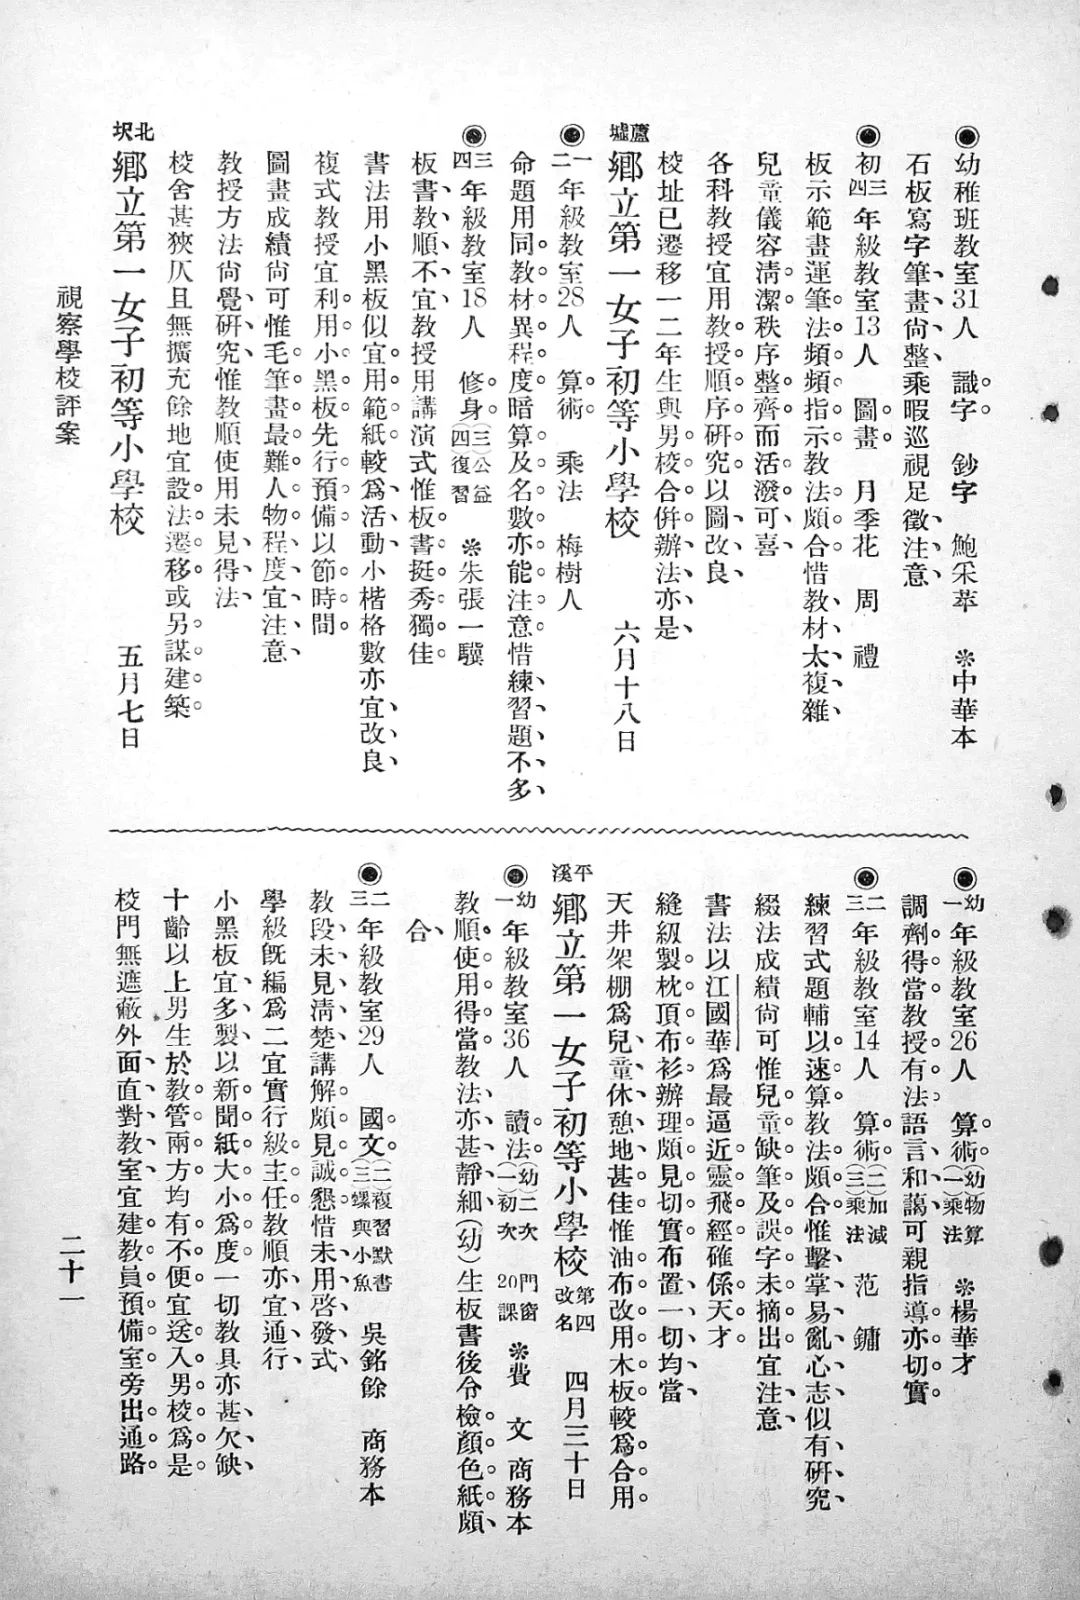 ◉幼稚班教室31人　識字　鈔字　鮑采苹　＊中華本
石板寫字筆畫尙整乘暇巡視足徵注意
◉初三四年級教室13人　圖畫　月季花　周　禮
板示範畫運筆法頻頻指示教法頗合惜教材太複雜
兒童儀容淸潔秩序整齊而活潑可喜
各科教授宜用教授順序硏究以圖改良
校址已遷移一二年生與男校合併辦法亦是
蘆墟鄉立第一女子初等小學校　六月十八日
◉一二年級教室28人　算術　乘法　梅樹人
命題用同教材異程度暗算及名數亦能注意惜練習題不多
◉三四年級教室18人　修身(三)公益(四)復習　＊朱張一驥
板書教順不宜教授用講演式惟板書挺秀獨佳
書法用小黑板似宜用範紙較爲活動小楷格數亦宜改良
複式教授宜利用小黑板先行預備以節時間
圖畫成績尙可惟毛筆畫最難人物程度宜注意
教授方法尙覺硏究惟教順使用未見得法
校舍甚狹仄且無擴充餘地宜設法遷移或另謀建築
北㘰鄉立第一女子初等小學校　五月七日
◉幼一年級教室26人　算術(幼)物算(一)乘法　＊楊華才
調劑得當教授有法語言和藹可親指導亦切實
◉二三年級教室14人　算術(二)加減(三)乘法　范　鏞
練習式題輔以速算教法頗合惟擊掌易亂心志似有硏究
綴法成績尙可惟兒童缺筆及誤字未摘出宜注意
書法以江國華爲最逼近靈飛經確係天才
縫級製枕頂布衫辦理頗見切實布置一切均當
天井架棚爲兒童休憩地甚佳惟油布改用木板較爲合用
平溪鄉立第一女子初等小學校第四改名　四月三十日
◉幼一年級教室36人　讀法(幼)二次(一)初次　門窗20課　＊費　文　商務本
教順使用得當教法亦甚靜細(幼)生板書後令檢顏色紙頗
合
◉二三年級教室29人　國文(二)複習默書(三)螺與小魚　吳銘餘　商務本
教段未見淸楚講解頗見誠懇惜未用啓發式
學級旣編爲二宜實行級主任教順亦宜通行
小黑板宜多製以新聞紙大小爲度一切教具亦甚欠缺
十齡以上男生於教管兩方均有不便宜送入男校爲是
校門無遮蔽外面直對教室宜建教員預備室旁出通路
視察學校評案
二十一